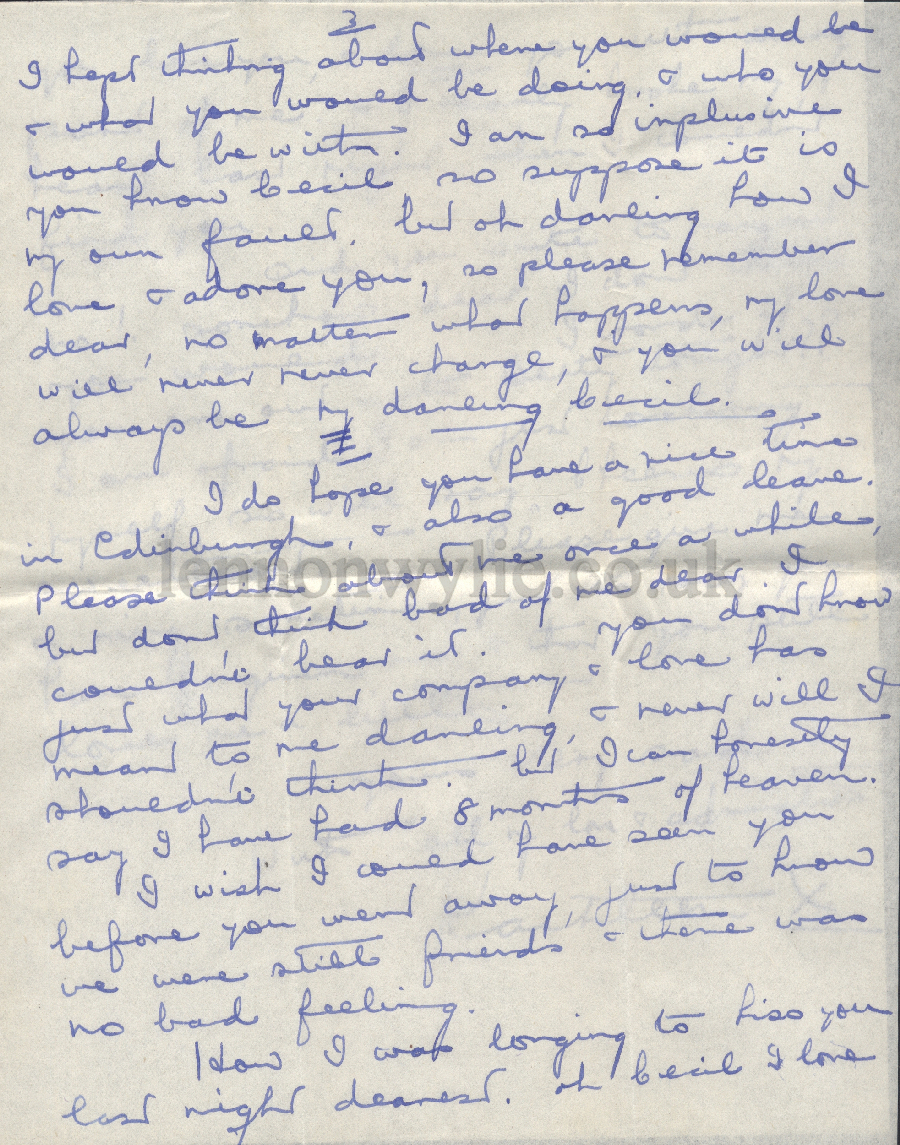 3
I kept thinking about where you would be
& what you would be doing, & who you
would be with. I am so inpulsive
you know Cecil, so suppose it is
my own fault, but oh darling how I
love, & adore you, so please remember
dear, no matter what happens, my love
will never never change, & you will
always be my darling Cecil.
I do hope you have a nice time
in Edinburgh, & also a good leave.
Please think about me once a while,
but don't think bad of me dear I
couldn't bear it. You don't know
just what your company & love has
meant to me darling, & never will I
shouldn't think. but I can honestly
say I have had 8 months of heaven.
I wish I could have seen you
before you went away, just to know
we were still friends & there was
no bad feeling.
How I was longing to kiss you
last night dearest. oh Cecil I love
lennonwylie.co.uk